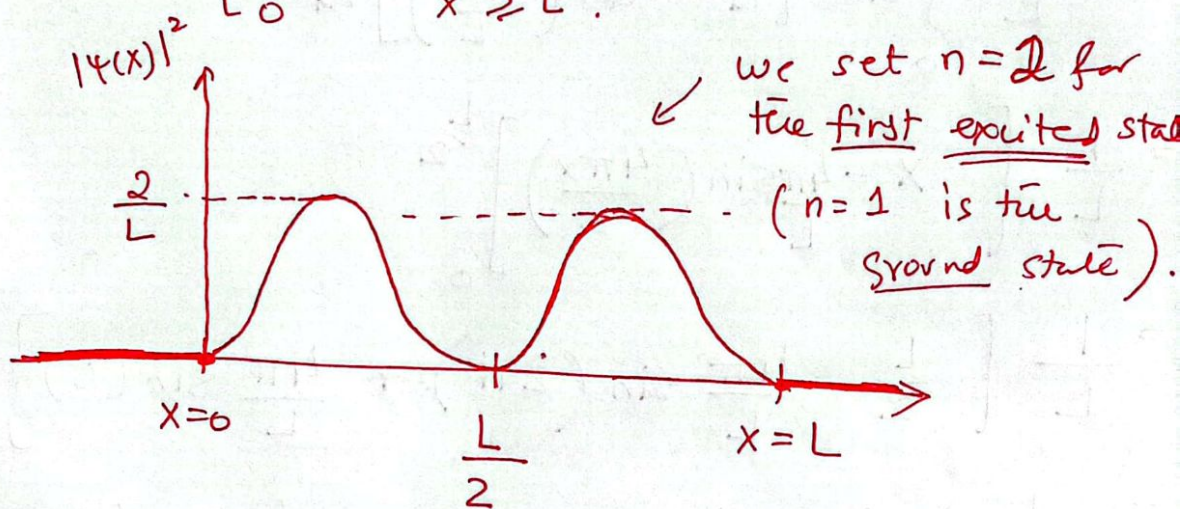 0 x ≥ L.
|ψ(x)|²
we set n=2 for
the first excited stat
2/L
(n=1 is the
ground state).
x=0
L/2
x=L